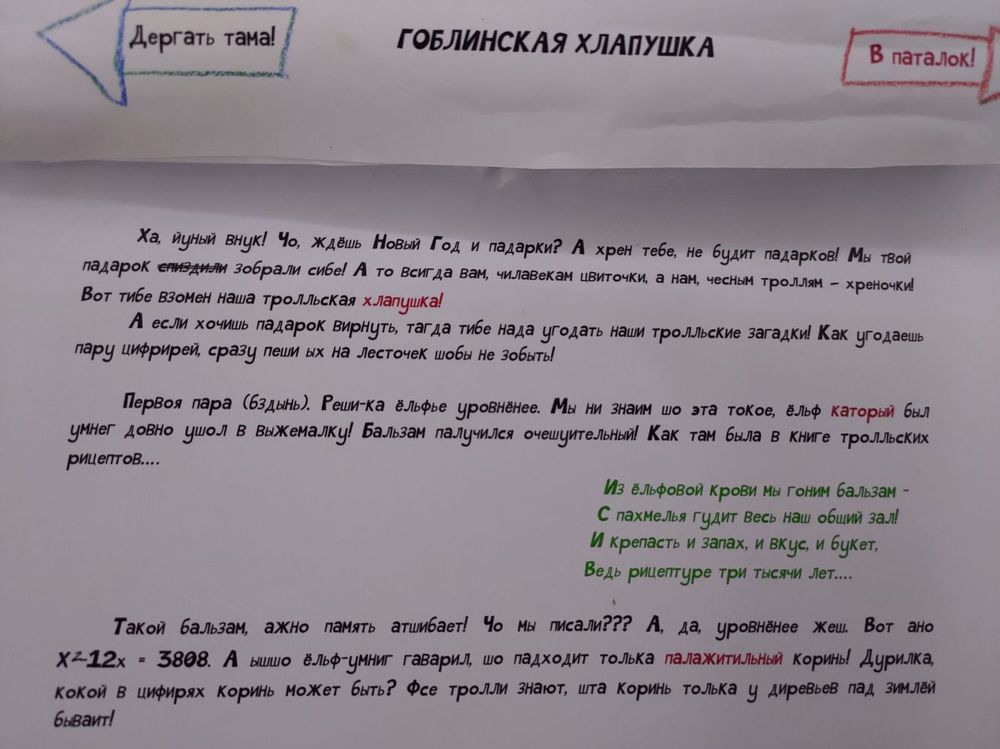 Дергать тама!
ГОБЛИНСКАЯ ХЛАПУШКА
В паталок!
Ха, йуный внук! Чо, ждёшь Новый Год и падарки? А хрен тебе, не будит падарков! Мы твой
падарок спиздили зобрали сибе! А то всигда вам, чилавекам цвиточки, а нам, чесным троллям – хреночки!
Вот тибе взомен наша тролльская хлапушка!
А если хочишь падарок вирнуть, тагда тибе нада угодать наши тролльские загадки! Как угодаешь
пару цифрирей, сразу пеши ых на лесточек шобы не зобыть!
Первоя пара (бздынь). Реши-ка ёльфье уровнёнее. Мы ни знаим шо эта токое, ёльф каторый был
умнег довно ушол в выжемалку! Бальзам палучился очешуительный! Как там была в книге тролльских
рицептов....
Из ёльфовой крови мы гоним бальзам -
С пахмелья гудит весь наш общий зал!
И крепасть и запах, и вкус, и букет,
Ведь рицептуре три тысячи лет....
Такой бальзам, ажно память атшибает! Чо мы писали??? А, да, уровнёнее жеш. Вот ано
X²-12x = 3808. А ышшо ёльф-умниг гаварил, шо падходит толька палажитильный коринь! Дурилка,
кокой в цифирях коринь может быть? Фсе тролли знают, шта коринь толька у диревьев пад зимлёй
бываит!